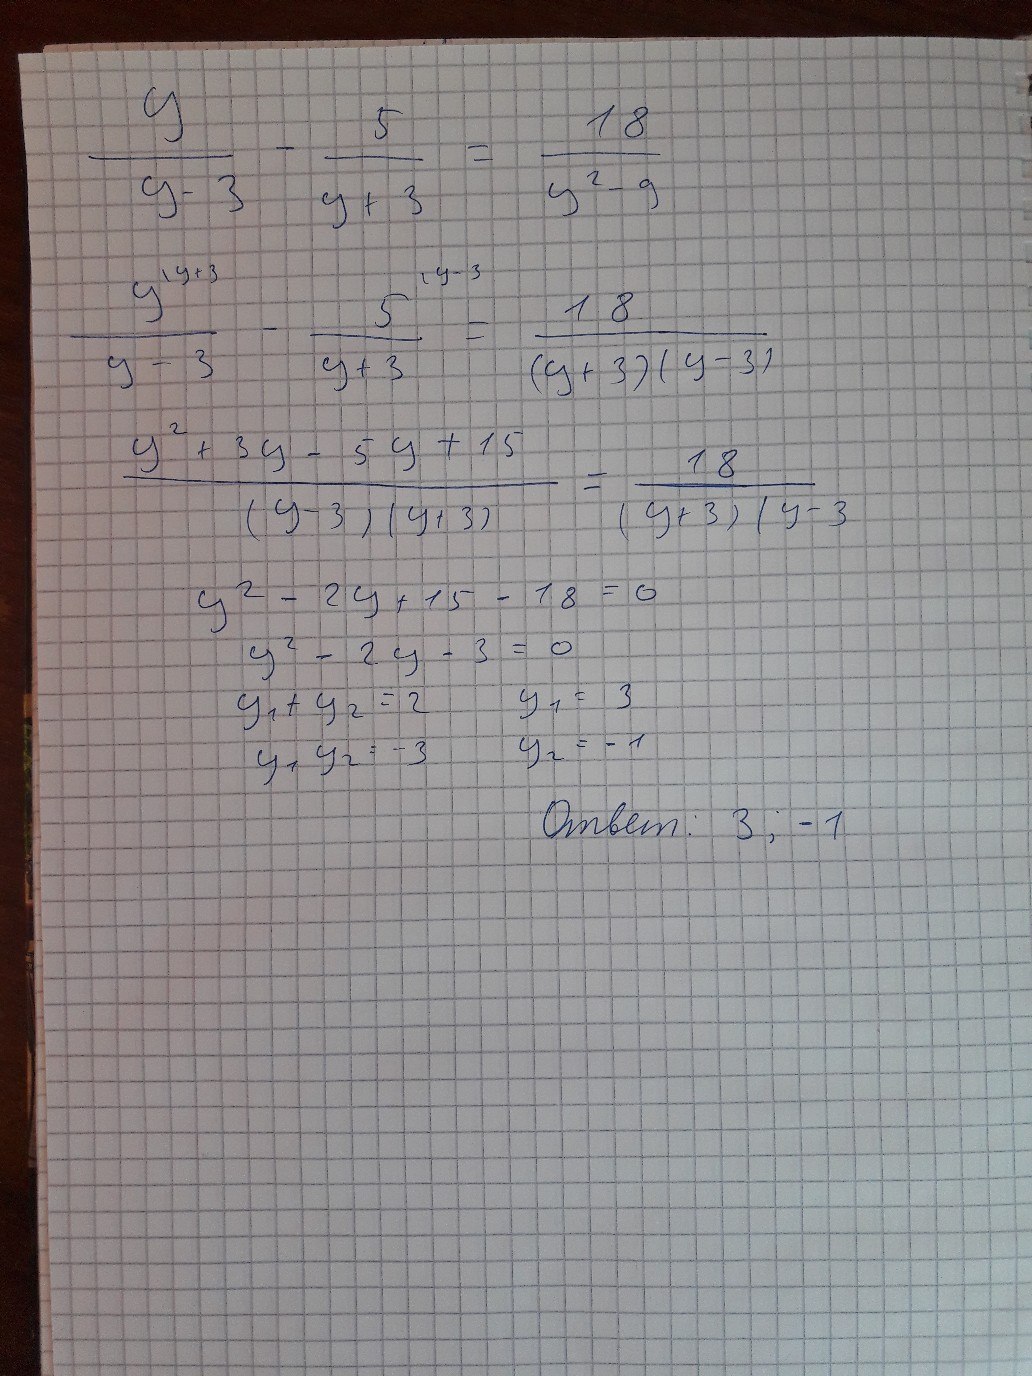 y/(y-3) - 5/(y+3) = 18/(y²-9)
y^(\y+3)/(y-3) - 5^(\y-3)/(y+3) = 18/((y+3)(y-3))
(y²+3y-5y+15)/((y-3)(y+3)) = 18/((y+3)(y-3
y²-2y+15-18=0
y²-2y-3=0
y₁+y₂=2 y₁=3
y₁y₂=-3 y₂=-1
Ответ: 3; -1